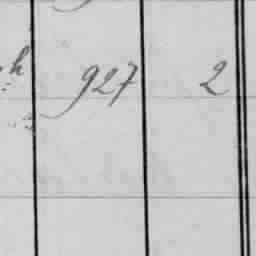 h 927 2